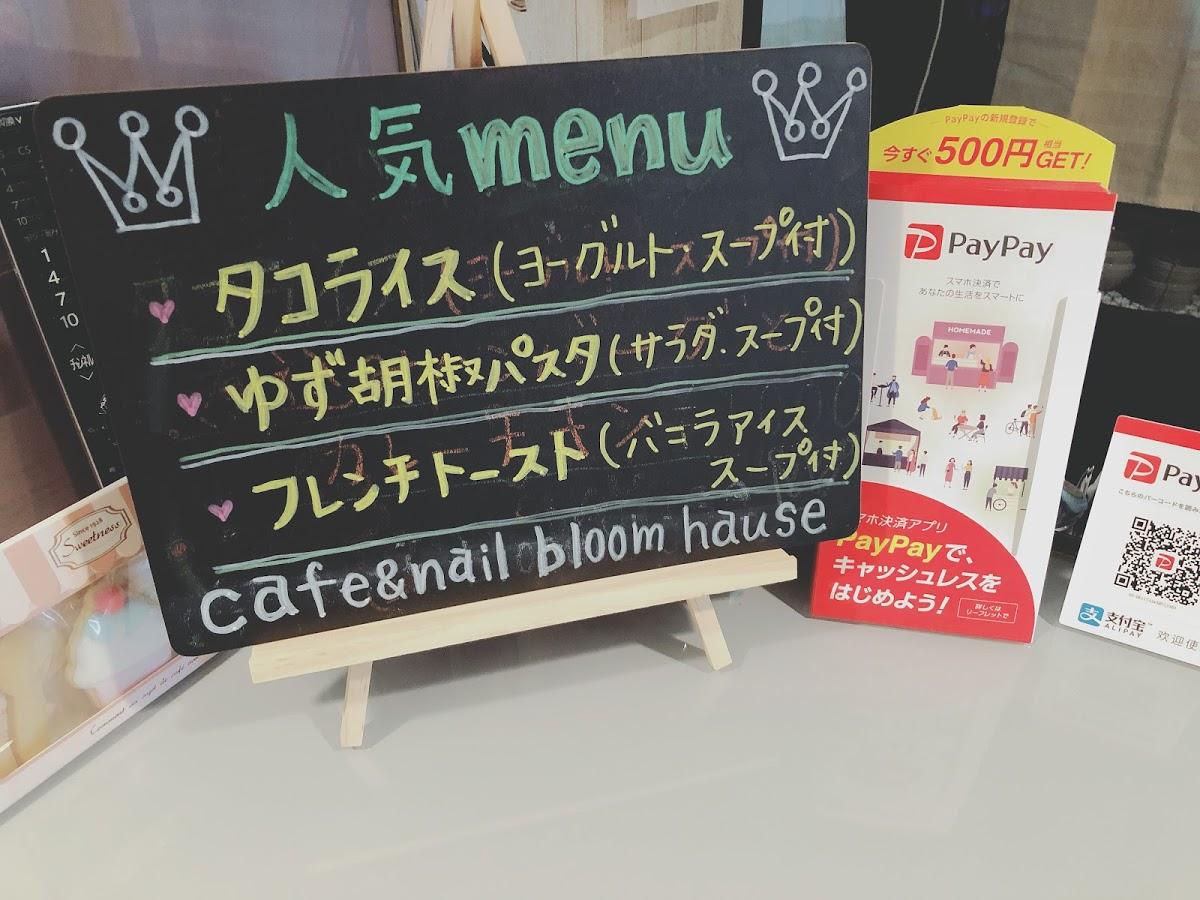 人気menu
タコライス(ヨーグルト スープ付)
ゆず胡椒パスタ(サラダ.スープ付)
フレンチトースト(バニラアイス
スープ付)
cafe&nail bloom hause
PayPayの新規登録で
今すぐ500円相当GET!
PayPay
スマホ決済で
あなたの生活をスマートに
HOMEMADE
マホ決済アプリ
PayPayで、
キャッシュレスを
はじめよう!
詳しくは
リーフレットで
Pay
こちらのバーコードを読み
支付宝™
ALIPAY
欢迎使
Since 1928
Sweetness
CS
1
4
7
10
1
4
7
10
チャンネル